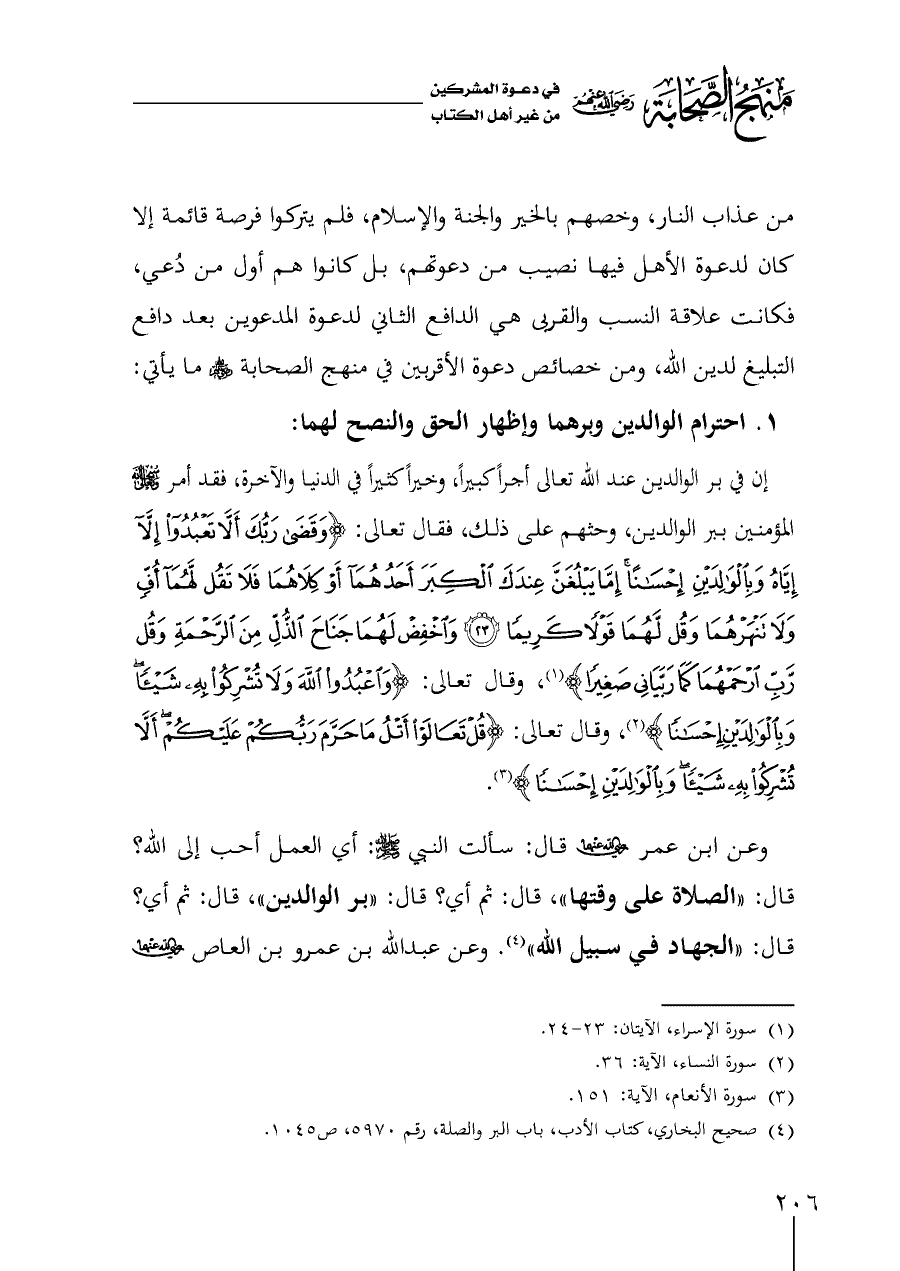 منهج الصحابة رضي الله عنهم
في دعوة المشركين
من غير أهل الكتاب
من عذاب النار، وخصهم بالخير والجنة والإسلام، فلم يتركوا فرصة قائمة إلا
كان لدعوة الأهل فيها نصيب من دعوتهم، بل كانوا هم أول من دُعي،
فكانت علاقة النسب والقربى هي الدافع الثاني لدعوة المدعوين بعد دافع
التبليغ لدين الله، ومن خصائص دعوة الأقربين في منهج الصحابة ﵃ ما يأتي:
١. احترام الوالدين وبرهما وإظهار الحق والنصح لهما:
إن في بر الوالدين عند الله تعالى أجراً كبيراً، وخيراً كثيراً في الدنيا والآخرة، فقد أمر ﷾
المؤمنين ببر الوالدين، وحثهم على ذلك، فقال تعالى: ﴿وَقَضَىٰ رَبُّكَ أَلَّا تَعْبُدُوٓا۟ إِلَّآ
إِيَّاهُ وَبِٱلْوَٰلِدَيْنِ إِحْسَٰنًا ۚ إِمَّا يَبْلُغَنَّ عِندَكَ ٱلْكِبَرَ أَحَدُهُمَآ أَوْ كِلَاهُمَا فَلَا تَقُل لَّهُمَآ أُفٍّ
وَلَا تَنْهَرْهُمَا وَقُل لَّهُمَا قَوْلًا كَرِيمًا ٢٣ وَٱخْفِضْ لَهُمَا جَنَاحَ ٱلذُّلِّ مِنَ ٱلرَّحْمَةِ وَقُل
رَّبِّ ٱرْحَمْهُمَا كَمَا رَبَّيَانِى صَغِيرًا﴾(١)، وقال تعالى: ﴿وَٱعْبُدُوا۟ ٱللَّهَ وَلَا تُشْرِكُوا۟ بِهِۦ شَيْـًٔا ۖ
وَبِٱلْوَٰلِدَيْنِ إِحْسَٰنًا﴾(٢)، وقال تعالى: ﴿قُلْ تَعَالَوْا۟ أَتْلُ مَا حَرَّمَ رَبُّكُمْ عَلَيْكُمْ ۖ أَلَّا
تُشْرِكُوا۟ بِهِۦ شَيْـًٔا ۖ وَبِٱلْوَٰلِدَيْنِ إِحْسَٰنًا﴾(٣).
وعن ابن عمر ﵄ قال: سألت النبي ﷺ: أي العمل أحب إلى الله؟
قال: «الصلاة على وقتها»، قال: ثم أي؟ قال: «بر الوالدين»، قال: ثم أي؟
قال: «الجهاد في سبيل الله»(٤). وعن عبدالله بن عمرو بن العاص ﵄
(١) سورة الإسراء، الآيتان: ٢٣-٢٤.
(٢) سورة النساء، الآية: ٣٦.
(٣) سورة الأنعام، الآية: ١٥١.
(٤) صحيح البخاري، كتاب الأدب، باب البر والصلة، رقم ٥٩٧٠، ص١٠٤٥.
٢٠٦